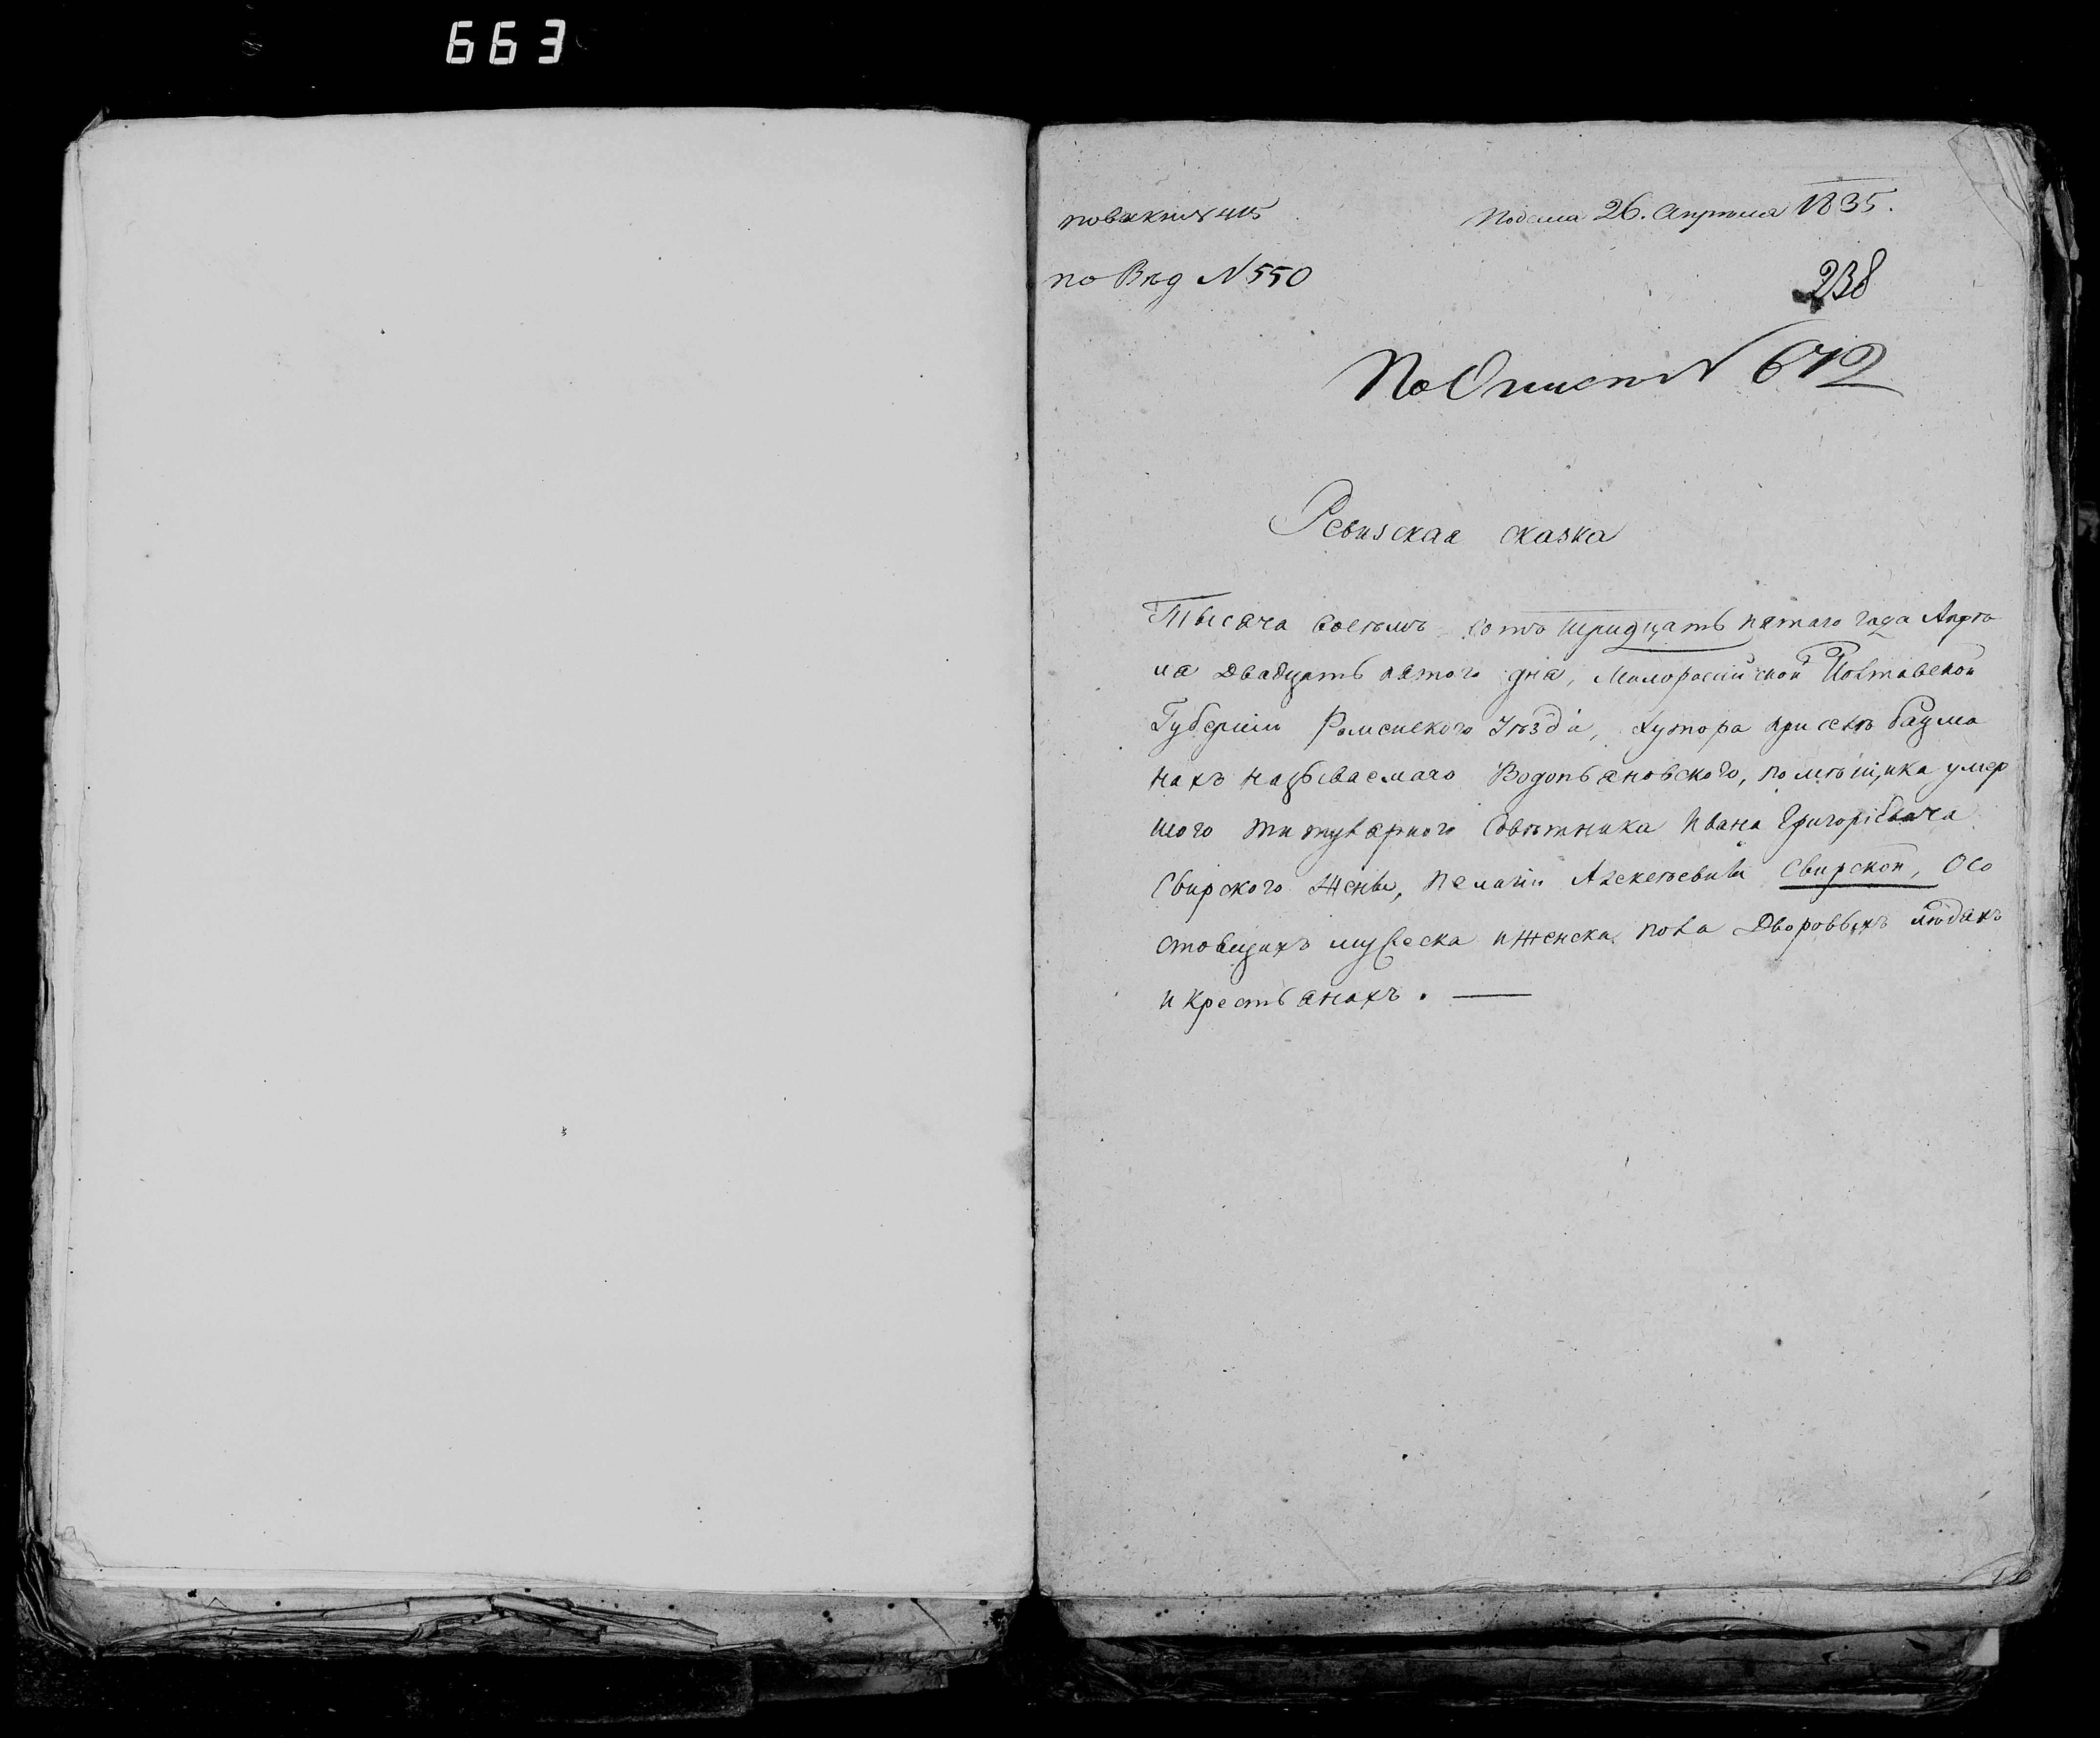 663
Подана 26. Апреля 1835.
по Вѣд N 550
238
По Описи N 672
Ревизская сказка
Тысяча восемъ сотъ тридцать пятаго года Апрѣ
ля двадцать пятого дня, Малоросийской Полтавской
Губернiи Роменского Уѣзда, хутора при селѣ Бацма
нахъ называемаго Водопьяновского, помѣщика умер
шого титулярного Совѣтника Ивана Григорiевича
Свирского жены, Пелагiи Алексѣевны Свирской, О со
стоящихъ мужеска и женска пола Дворовыхъ людяхъ
и крестьянахъ. —